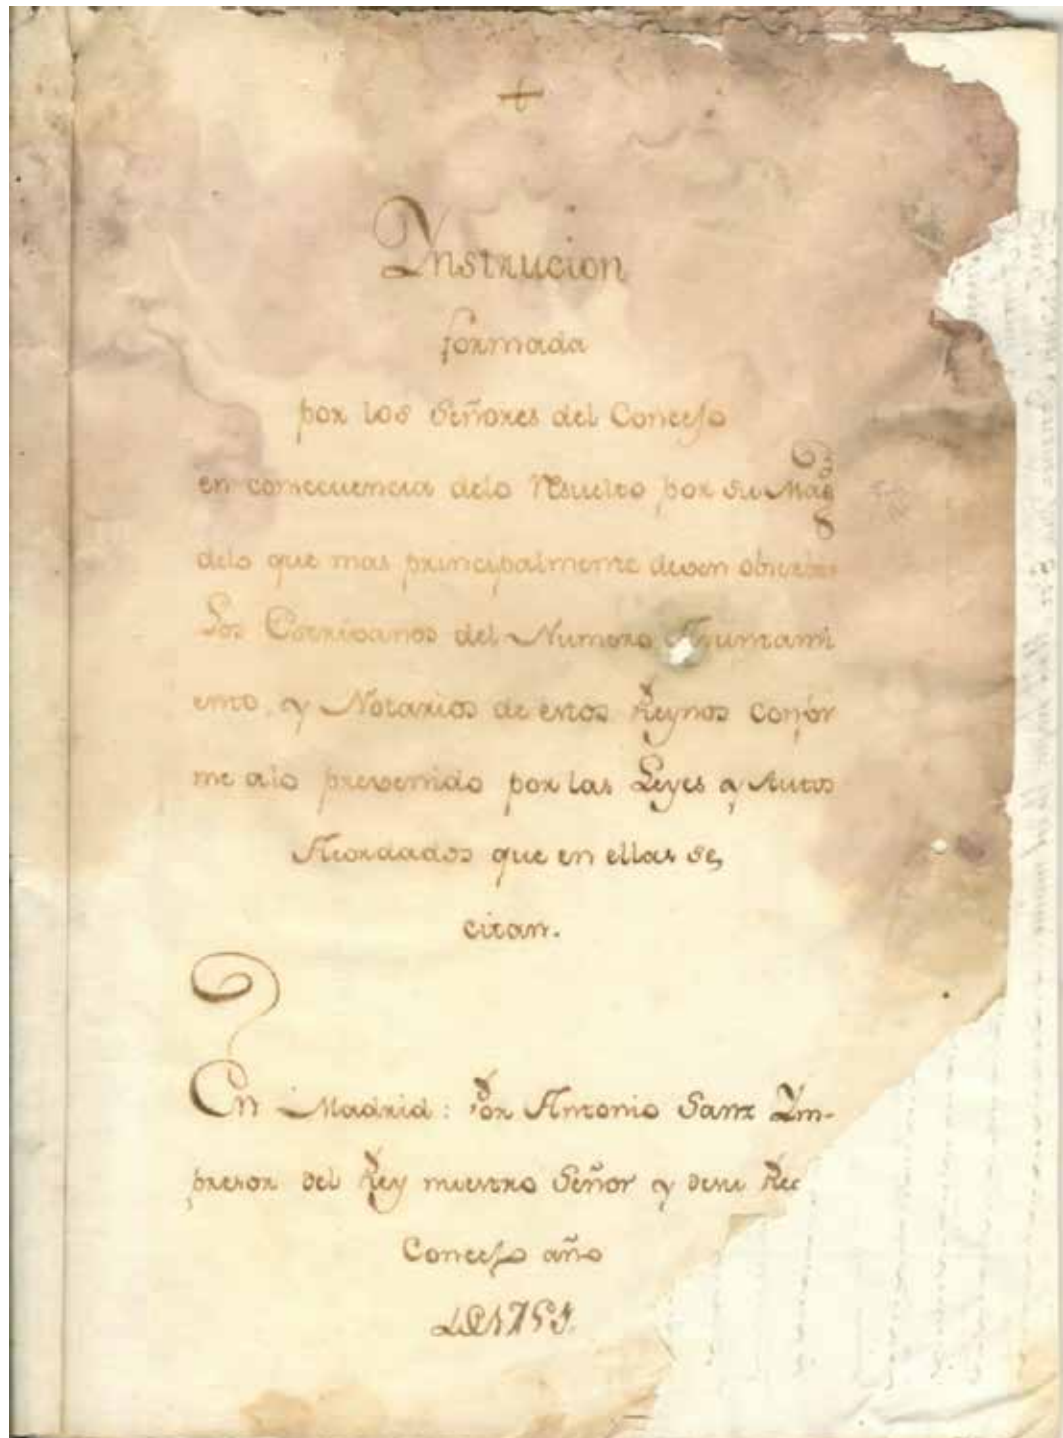 +
Ynstrucion
formada
por los Señores del Concejo
en consecuencia delo Resuelto por su Mag
delo que mas principalmente deven observar
Los Escrivanos del Numero Ayuntami
ento, y Notarios de estos Reynos confor
me alo prevenido por las Leyes y Autos
Acordados que en ellas se,
citan.
En Madrid: Por Antonio Sanz Ym-
presor del Rey nuestro Señor y desu Rec
Concejo año